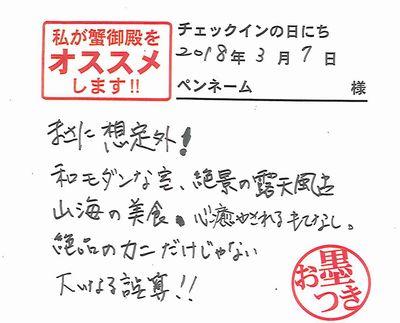 私が蟹御殿を
オススメ
します!!
チェックインの日にち
2018年3月7日
ペンネーム 様
まさに想定外!
和モダンな室、絶景の露天風呂
山海の美食、心癒やされるもてなし。
絶品のカニだけじゃない
大いなる誤算!!
お墨つき